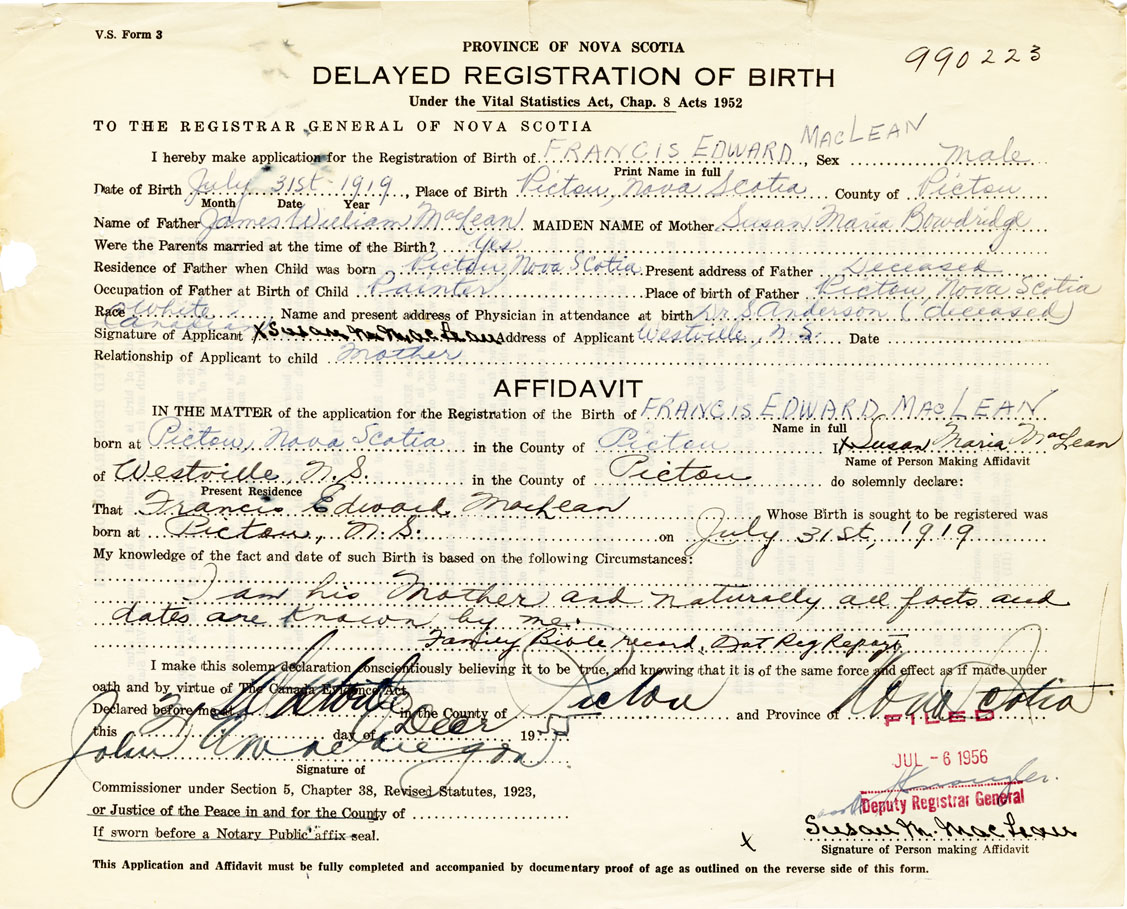 V.S. Form 3
PROVINCE OF NOVA SCOTIA
990223
DELAYED REGISTRATION OF BIRTH
Under the Vital Statistics Act, Chap. 8 Acts 1952
TO THE REGISTRAR GENERAL OF NOVA SCOTIA
I hereby make application for the Registration of Birth of FRANCIS EDWARD MACLEAN, Sex Male
Print Name in full
Date of Birth July 31st - 1919, Place of Birth Pictou, Nova Scotia County of Pictou
Month Date Year
Name of Father James William MacLean MAIDEN NAME of Mother Susan Maria Bowdridge
Were the Parents married at the time of the Birth? Yes
Residence of Father when Child was born Pictou, Nova Scotia Present address of Father Deceased
Occupation of Father at Birth of Child Painter Place of birth of Father Pictou, Nova Scotia
Race White (Canadian) Name and present address of Physician in attendance at birth Dr S. Anderson (deceased)
Signature of Applicant X Susan M. MacLean Address of Applicant Westville, N.S. Date
Relationship of Applicant to child Mother
AFFIDAVIT
IN THE MATTER of the application for the Registration of the Birth of FRANCIS EDWARD MACLEAN
Name in full
born at Pictou, Nova Scotia in the County of Pictou I, X Susan Maria MacLean
Name of Person Making Affidavit
of Westville, N.S. in the County of Pictou do solemnly declare:
Present Residence
That Francis Edward MacLean Whose Birth is sought to be registered was
born at Pictou, N.S. on July 31st, 1919
My knowledge of the fact and date of such Birth is based on the following Circumstances:
I am his Mother and naturally all facts and
dates are known by me.
Family Bible record, Nat Reg Report
I make this solemn declaration conscientiously believing it to be true, and knowing that it is of the same force and effect as if made under
oath and by virtue of The Canada Evidence Act.
Declared before me at in the County of Pictou and Province of Nova Scotia
this day of Decr 1955
FILED
John
Signature of
JUL - 6 1956
Commissioner under Section 5, Chapter 38, Revised Statutes, 1923,
Deputy Registrar General
or Justice of the Peace in and for the County of
Susan M. MacLean
If sworn before a Notary Public affix seal.
X
Signature of Person making Affidavit
This Application and Affidavit must be fully completed and accompanied by documentary proof of age as outlined on the reverse side of this form.